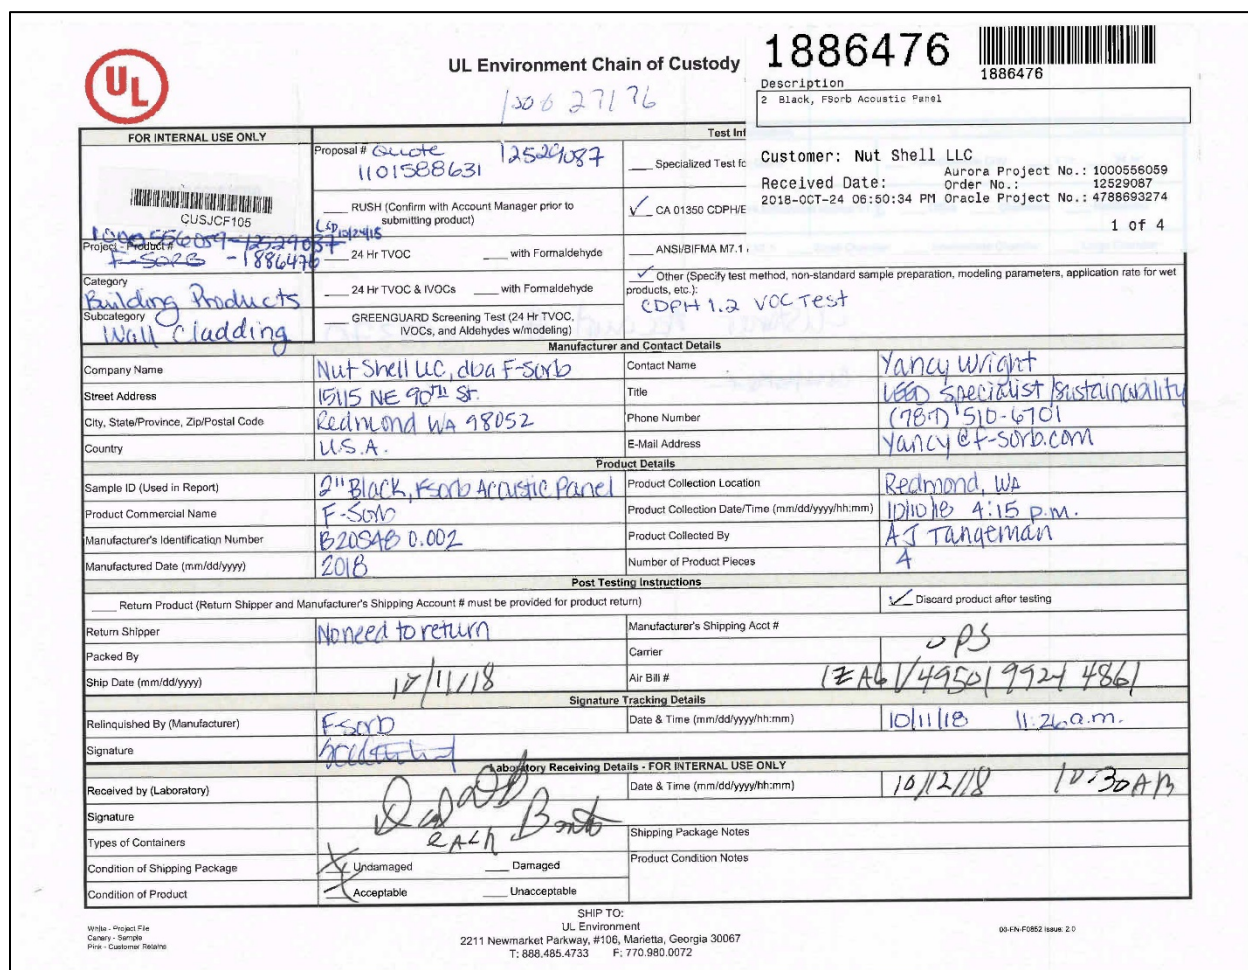 UL
UL Environment Chain of Custody
1886476
1886476
Description
2 Black, FSorb Acoustic Panel
Customer: Nut Shell LLC
Aurora Project No.: 1000556059
Received Date:
Order No.: 12529087
2018-OCT-24 06:50:34 PM Oracle Project No.: 4788693274
1 of 4
FOR INTERNAL USE ONLY
Test Inf
CUSJCF105
Proposal # Quote 12529087
1101588631
Specialized Test fo
RUSH (Confirm with Account Manager prior to
submitting product)
✓ CA 01350 CDPH/E
1000556059-12529087
Project - Product #
F-SORB - 1886476
LSD 10/24/18
24 Hr TVOC with Formaldehyde
ANSI/BIFMA M7.1
Category
Building Products
24 Hr TVOC & IVOCs with Formaldehyde
✓ Other (Specify test method, non-standard sample preparation, modeling parameters, application rate for wet
products, etc.):
CDPH 1.2 VOC Test
Subcategory
Wall Cladding
GREENGUARD Screening Test (24 Hr TVOC,
IVOCs, and Aldehydes w/modeling)
Manufacturer and Contact Details
Company Name Nut Shell LLC, dba F-Sorb Contact Name Yancy Wright
Street Address 15115 NE 90TH St. Title LEED Specialist/Sustainability
City, State/Province, Zip/Postal Code Redmond WA 98052 Phone Number (787) 510-6701
Country U.S.A. E-Mail Address Yancy@f-sorb.com
Product Details
Sample ID (Used in Report) 2" Black, Fsorb Acoustic Panel Product Collection Location Redmond, WA
Product Commercial Name F-Sorb Product Collection Date/Time (mm/dd/yyyy/hh:mm) 10/10/18 4:15 p.m.
Manufacturer's Identification Number B20S48 0.002 Product Collected By AJ Tangeman
Manufactured Date (mm/dd/yyyy) 2018 Number of Product Pieces 4
Post Testing Instructions
Return Product (Return Shipper and Manufacturer's Shipping Account # must be provided for product return) ✓ Discard product after testing
Return Shipper No need to return Manufacturer's Shipping Acct #
Packed By Carrier UPS
Ship Date (mm/dd/yyyy) 10/11/18 Air Bill #
Signature Tracking Details
Relinquished By (Manufacturer) F-sorb Date & Time (mm/dd/yyyy/hh:mm) 10/11/18 11:26 a.m.
Signature
Laboratory Receiving Details - FOR INTERNAL USE ONLY
Received by (Laboratory) Date & Time (mm/dd/yyyy/hh:mm) 10/12/18 10:30 AM
Signature
Types of Containers Shipping Package Notes
Condition of Shipping Package Undamaged Damaged Product Condition Notes
Condition of Product Acceptable Unacceptable
White - Project File
Canary - Sample
Pink - Customer Retains
SHIP TO:
UL Environment
2211 Newmarket Parkway, #106, Marietta, Georgia 30067
T: 888.485.4733 F: 770.980.0072
00-EN-F0852 Issue: 2.0